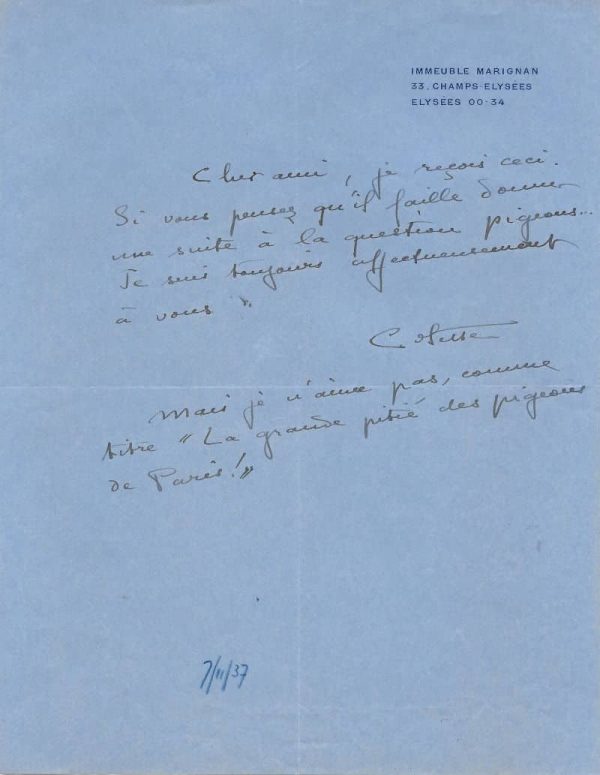 IMMEUBLE MARIGNAN
33. CHAMPS-ELYSÉES
ELYSÉES 00-34
Cher ami, je reçois ceci.
Si vous pensez qu'il faille donner
une suite à la question pigeons...
Je suis toujours affectueusement
à vous.
Colette
Mais je n'aime pas, comme
titre "La grande pitié des pigeons
de Paris!"
7/11/37